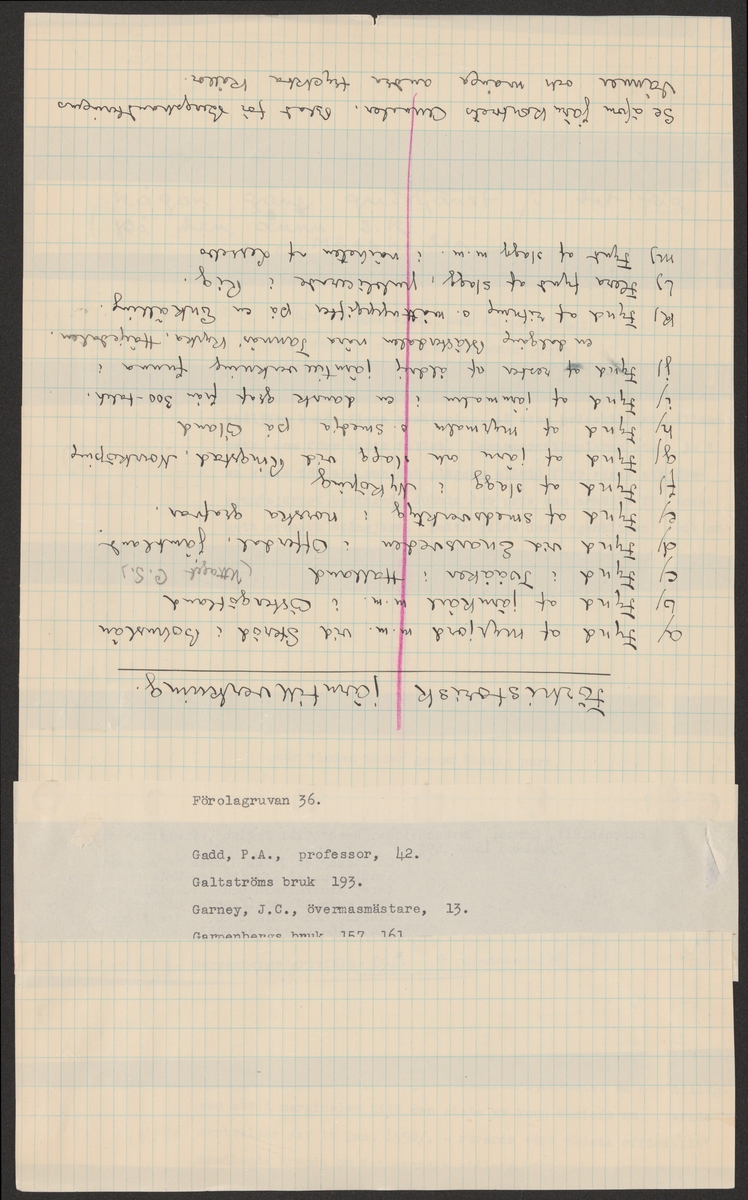 Förhistorisk järntillverkning.
a/ Fynd af myrjord m.m. vid Steröd i Bohuslän
b/ Fynd af järnkärl m.m. i Östergötland
c/ Fynd i Tvååker i Halland (Uttaget C.S.)
d/ Fynd vid Enarsveden i Offerdal, Jämtland
e/ Fynd af smedsverktyg i norska grafvar
f/ Fynd af slagg i Nyköping
g/ Fynd af järn och slagg vid Ringstad, Norrköping
h/ Fynd af myrmalm o. smedja på Öland
i/ Fynd af järnmalm i en dansk graf från 300-talet.
j/ Fynd af rester af äldrig järntillverkning funna i
en dalgång Österdalen nära Tännäs kyrka, Härjedalen.
k/ Fynd af ritning o. måttuppgifter på en Enkälling.
l/ Flera fynd af slagg, publicerade i Rig.
m/ Fynd af slagg m.m. i närheten af Lessebo
Se äfven Järnkontorets Annaler. Blad för Bergshandteringens
vänner och många andra tryckta källor.
Förolagruvan 36.
Gadd, P.A., professor, 42.
Galtströms bruk 193.
Garney, J.C., övermasmästare, 13.
Garpenbergs bruk 157, 161